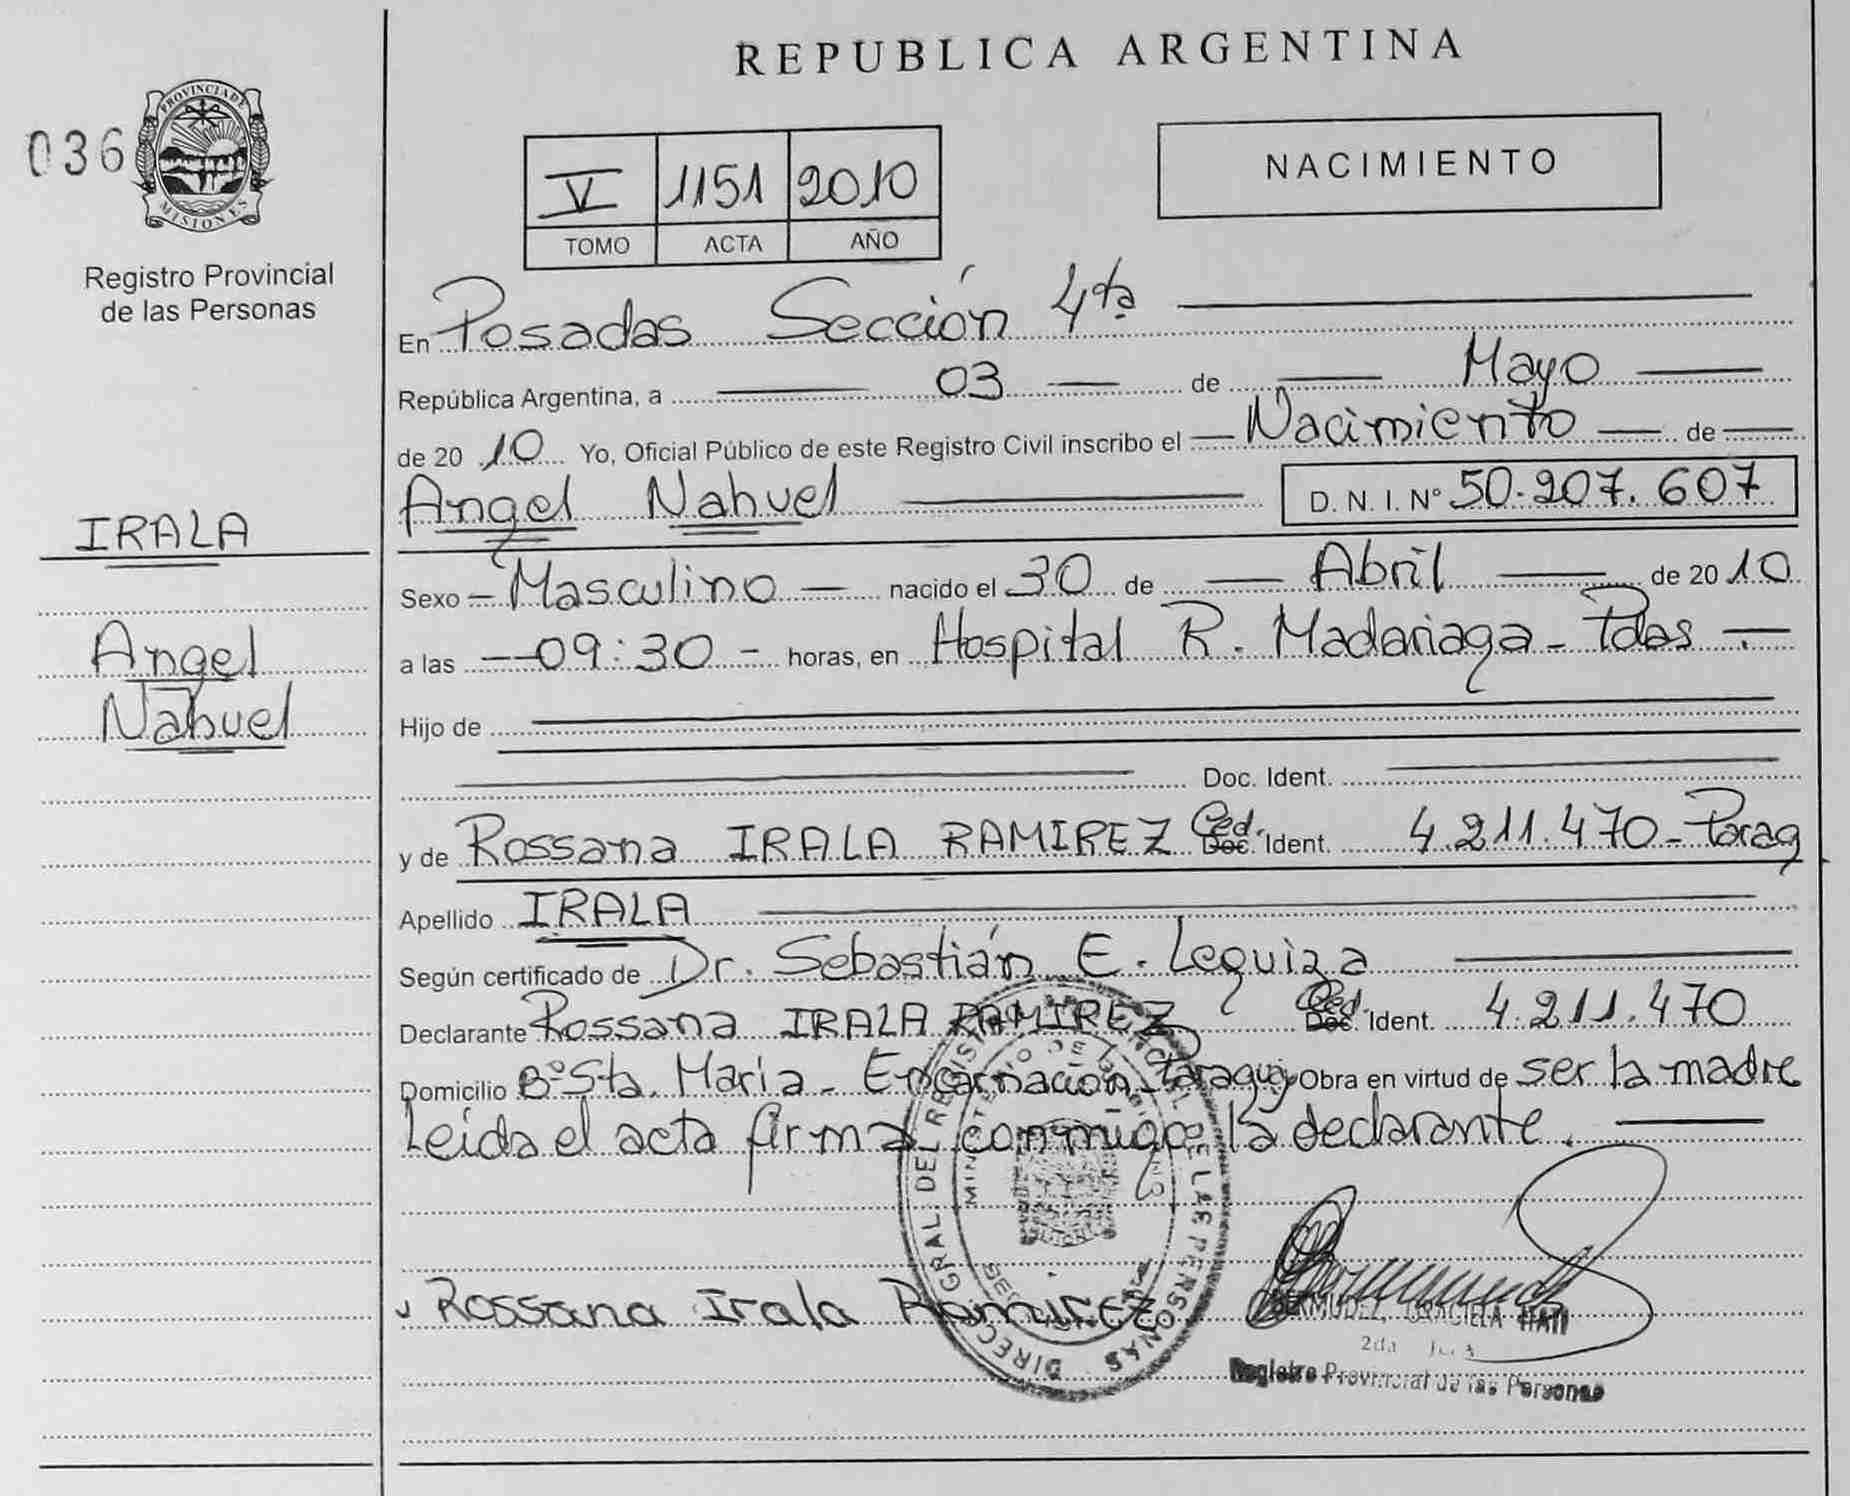 REPUBLICA ARGENTINA
036
PROVINCIA DE
MISIONES
Registro Provincial
de las Personas
V 1151 2010
TOMO ACTA AÑO
NACIMIENTO
En Posadas Sección 4ta
República Argentina, a 03 de Mayo
de 2010 Yo, Oficial Público de este Registro Civil inscribo el Nacimiento de
Angel Nahuel D. N. I. Nº 50.207.607
IRALA
Angel
Nahuel
Sexo Masculino nacido el 30 de Abril de 2010
a las 09:30 horas, en Hospital R. Madariaga - Pdas.
Hijo de
Doc. Ident.
y de Rossana IRALA RAMIREZ Ced. Doc. Ident. 4.211.470 - Parag
Apellido IRALA
Según certificado de Dr. Sebastián E. Leguiza
Declarante Rossana IRALA RAMIREZ Ced. Doc. Ident. 4.211.470
Domicilio Bº Sta. Maria - Encarnación - Paraguay Obra en virtud de ser la madre
Leída el acta firma conmigo la declarante.
Rossana Irala Ramirez
DIRECC GRAL. DEL REGISTRO PROVINCIAL DE LAS PERSONAS
BERMUDEZ, GRACIELA
2da
Registro Provincial de las Personas